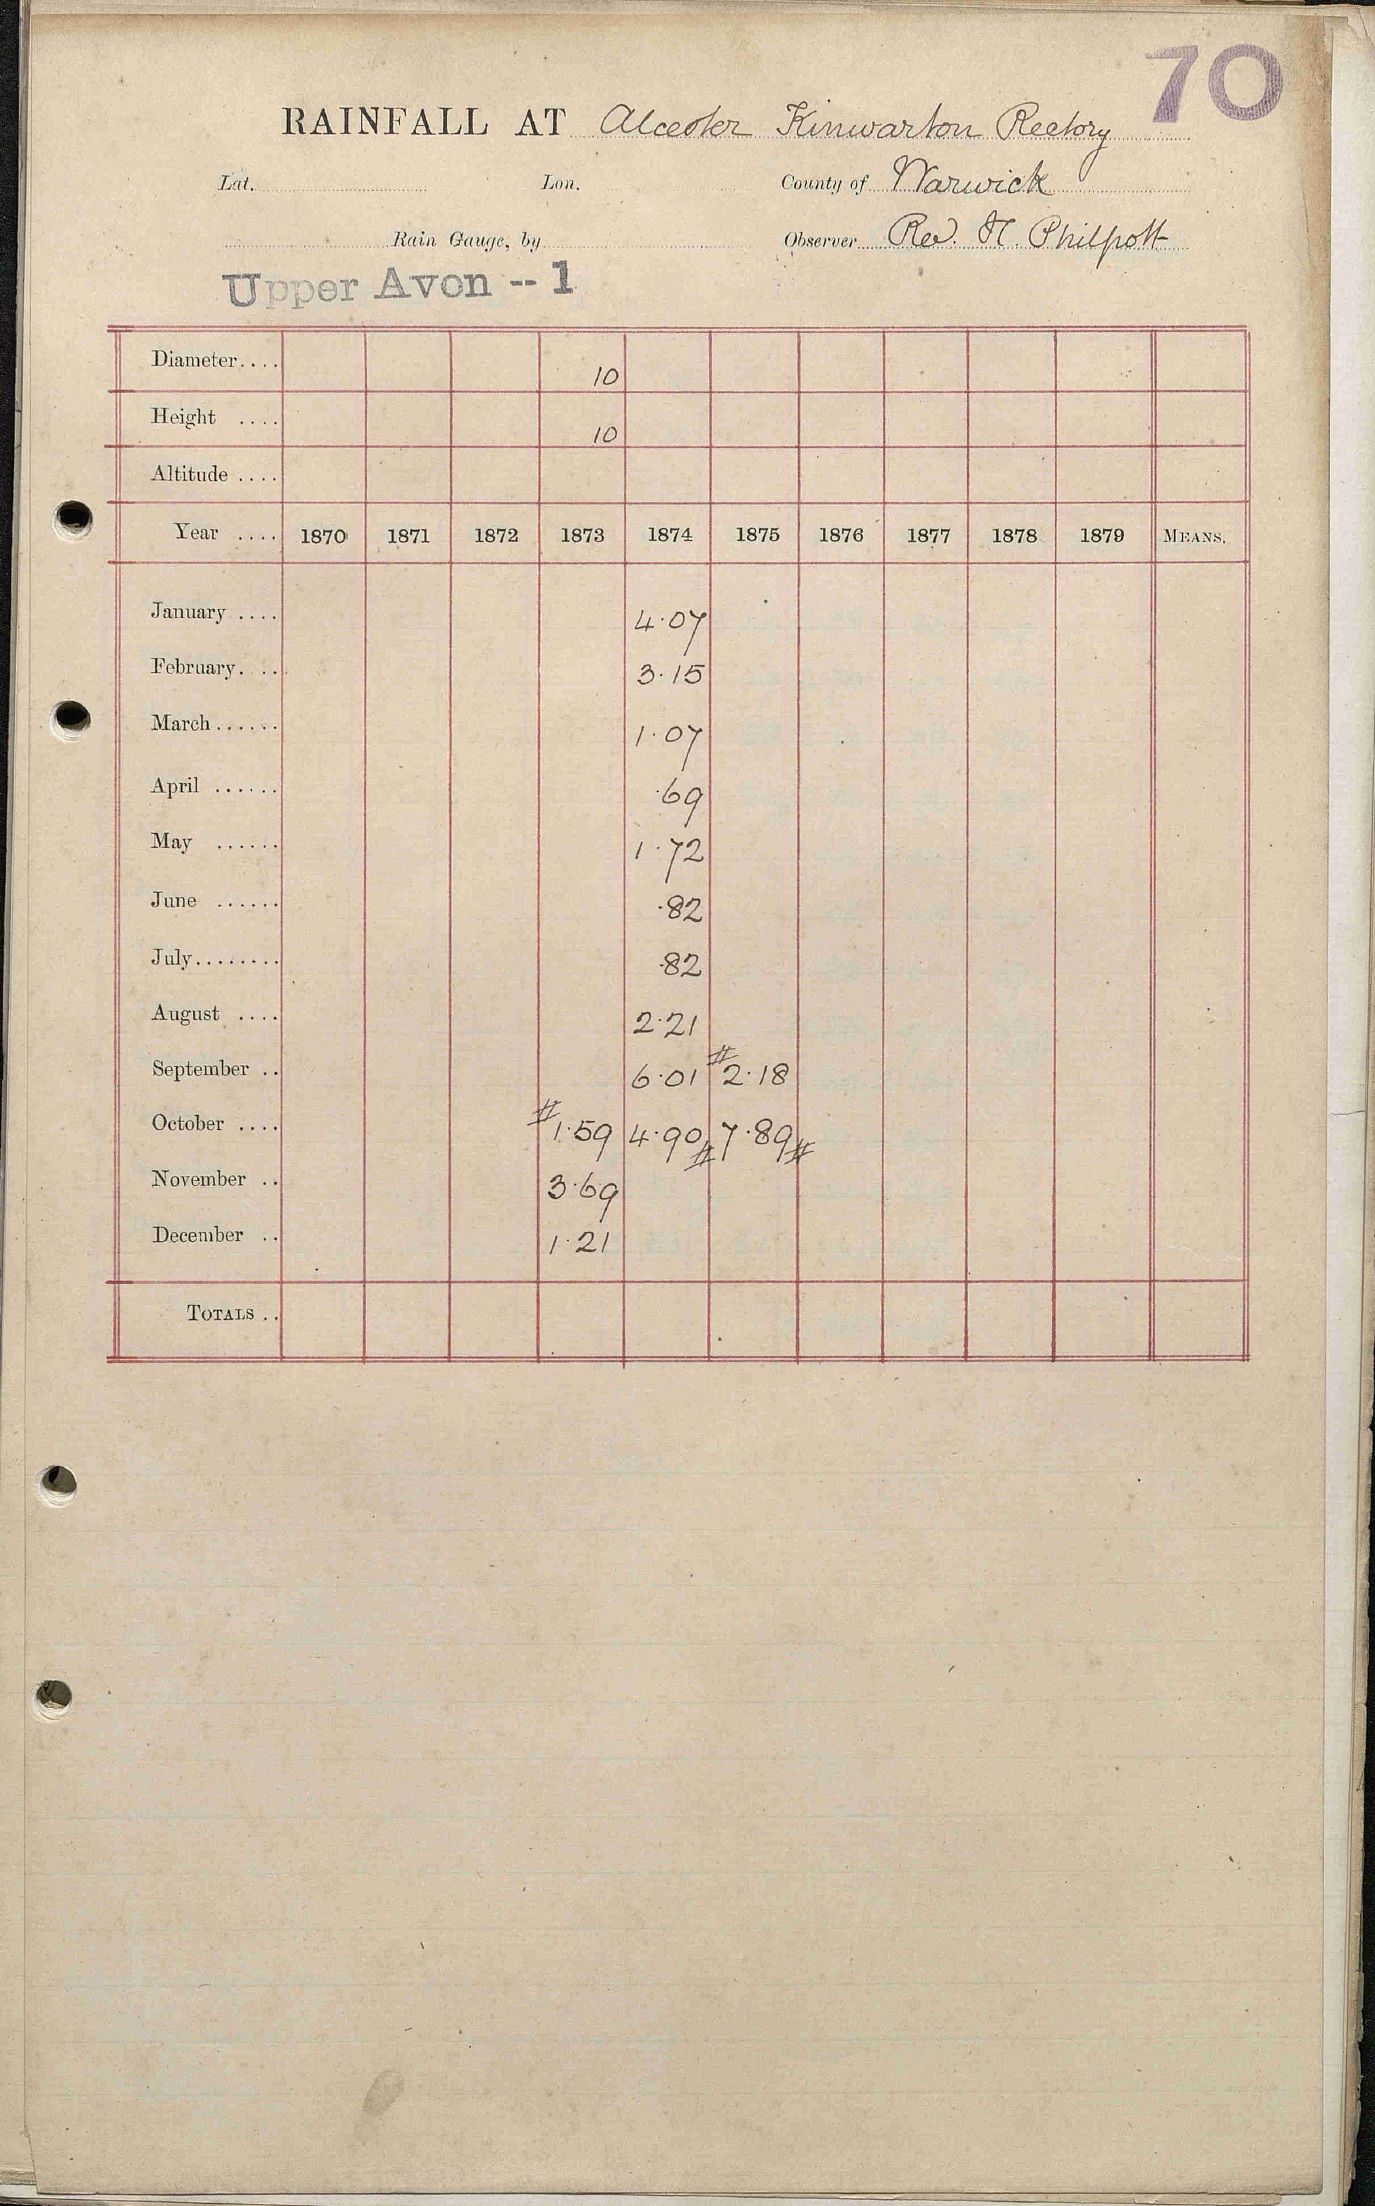 70
RAINFALL AT Alcester Kinwarton Rectory
Lat. Lon. County of Warwick
Rain Gauge, by Observer Rev. H. Philpott
Upper Avon -- 1
Diameter.... 10
Height .... 10
Altitude ....
Year .... 1870 1871 1872 1873 1874 1875 1876 1877 1878 1879 MEANS.
January .... 4·07
February. ... 3·15
March...... 1·07
April ...... ·69
May ...... 1·72
June ...... ·82
July........ ·82
August .... 2·21
September .. 6·01 #2·18
October .... #1·59 4·90# 7·89#
November .. 3·69
December .. 1·21
TOTALS ..